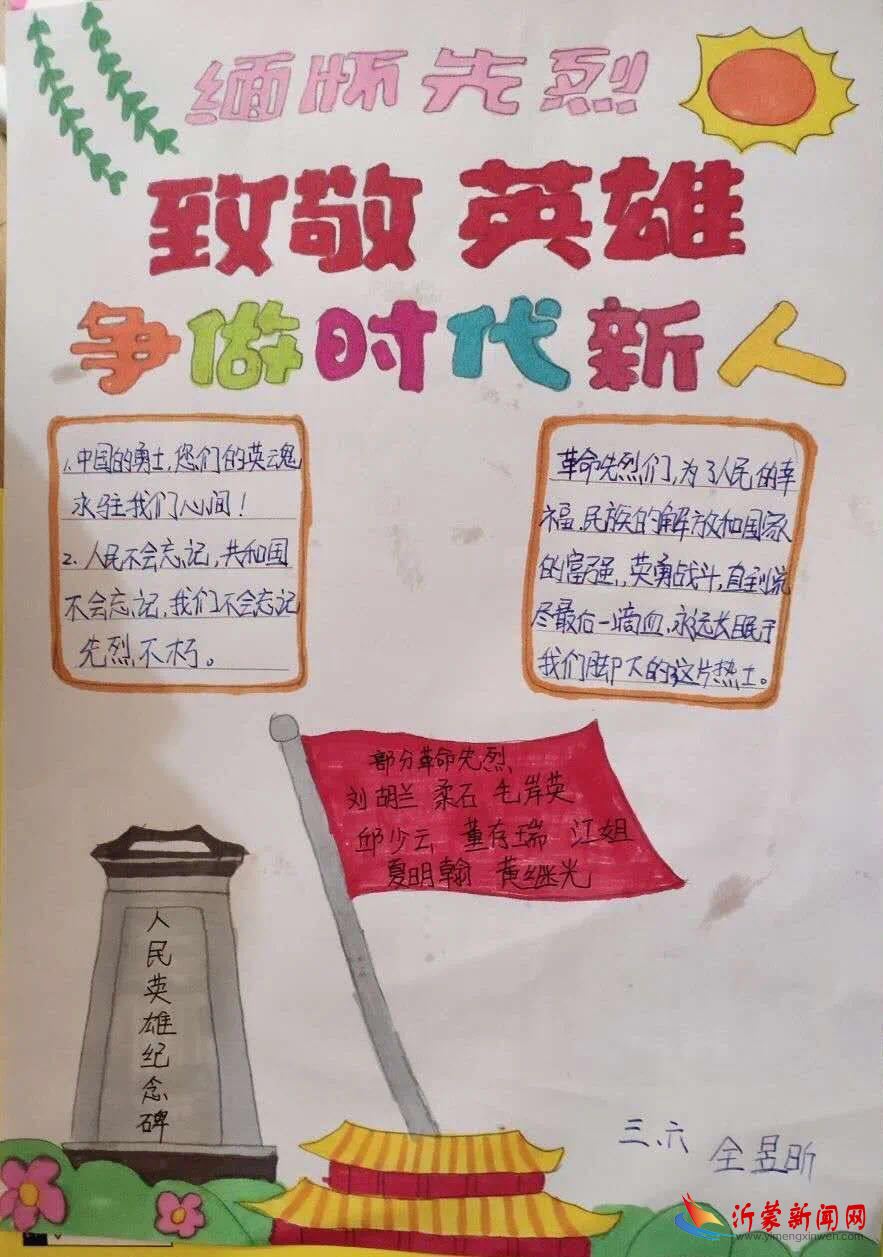 缅怀先烈
致敬英雄
争做时代新人
1.中国的勇士,您们的英魂
永驻我们心间!
2.人民不会忘记,共和国
不会忘记,我们不会忘记
先烈不朽。
革命先烈们,为了人民的幸
福,民族的解放和国家
的富强,英勇战斗,直到流
尽最后一滴血,永远长眠于
我们脚下的这片热土。
部分革命先烈
刘胡兰 柔石 毛岸英
邱少云 董存瑞 江姐
夏明翰 黄继光
人民英雄纪念碑
三、六 全昱昕
沂蒙新闻网
www.yimengxinwen.com